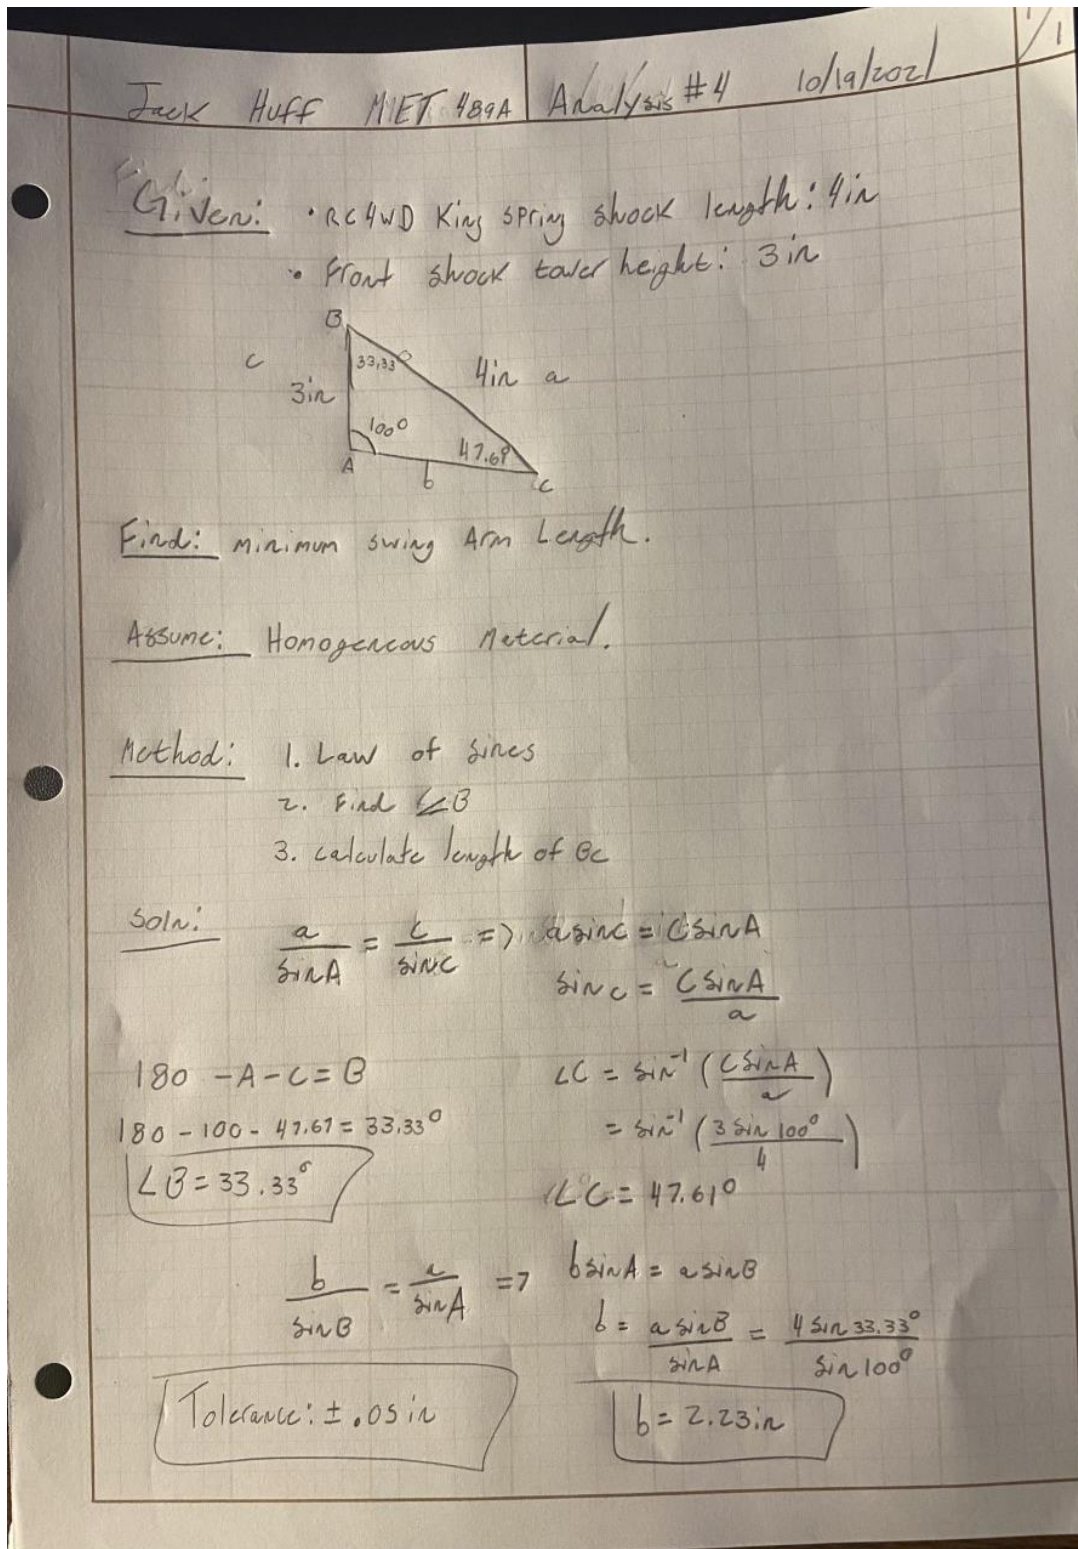 1/1
Jack Huff MIET 489A Analysis #4 10/19/2021
Given: • RC4WD King spring shock length: 4in
• Front shock tower height: 3in
B
c 33,33° 4in a
3in
100° 47.69
A b C
Find: minimum swing Arm Length.
Assume: Homogeneous Material.
Method: 1. Law of sines
2. Find ∠B
3. calculate length of BC
Soln: a/sinA = c/sinC => a sinC = C sinA
sin c = C sinA / a
180 - A - C = B ∠C = sin⁻¹ (C sinA / a)
180 - 100 - 47.67 = 33.33° = sin⁻¹ (3 sin 100° / 4)
∠B = 33.33° ∠C = 47.61°
b/sinB = a/sinA => b sinA = a sinB
b = a sinB / sinA = 4 sin 33.33° / sin 100°
Tolerance: ± .05in b = 2.23in